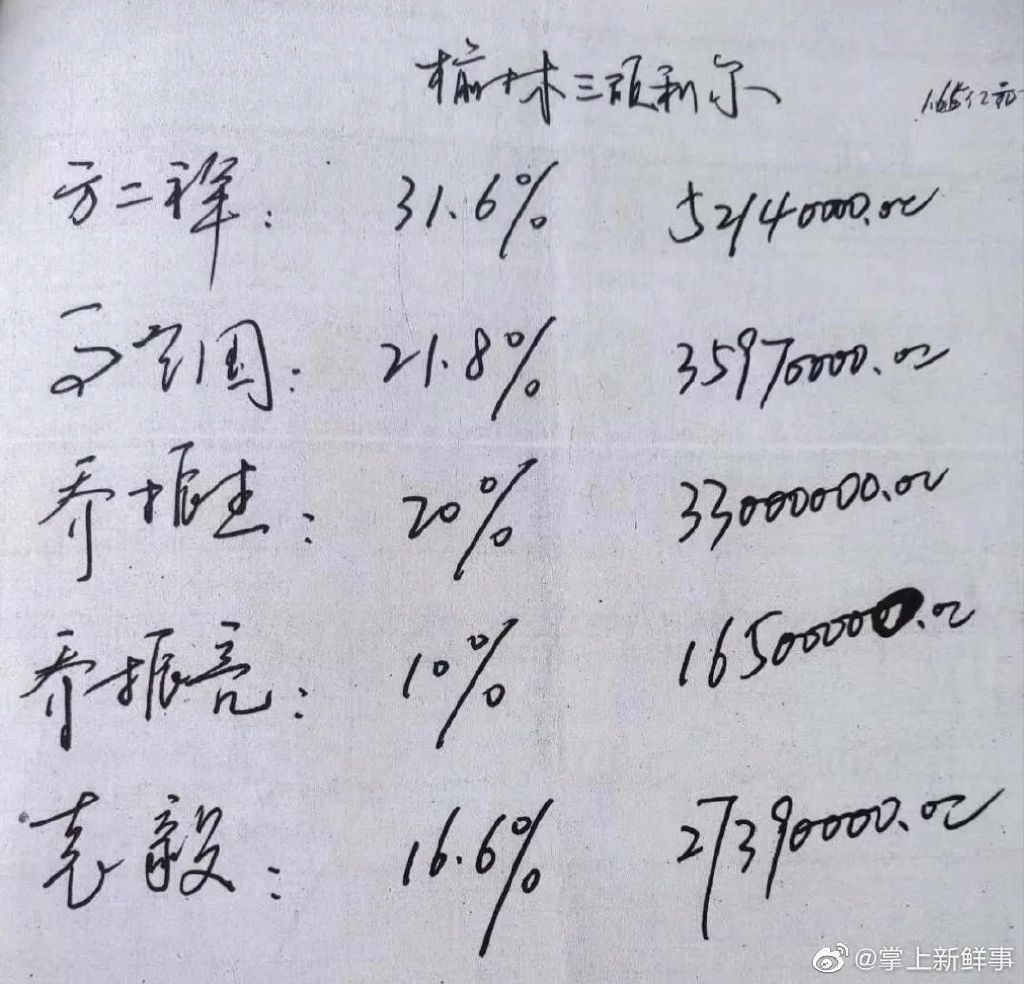 榆林三顽利尔
1.65亿元
方二祥: 31.6% 52140000.00
定国: 21.8% 35970000.00
乔振生: 20% 33000000.00
乔振亮: 10% 16500000.00
毅: 16.6% 27390000.00
@掌上新鲜事